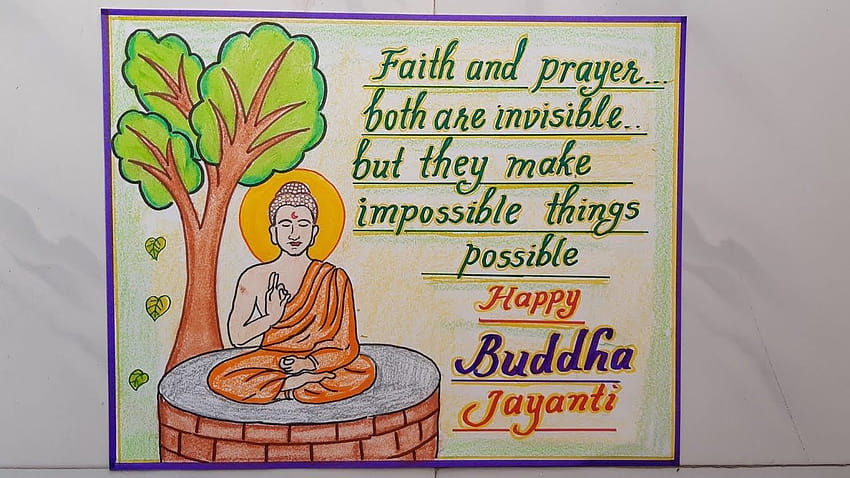 Faith and prayer...
both are invisible..
but they make
impossible things
possible
Happy
Buddha
Jayanti